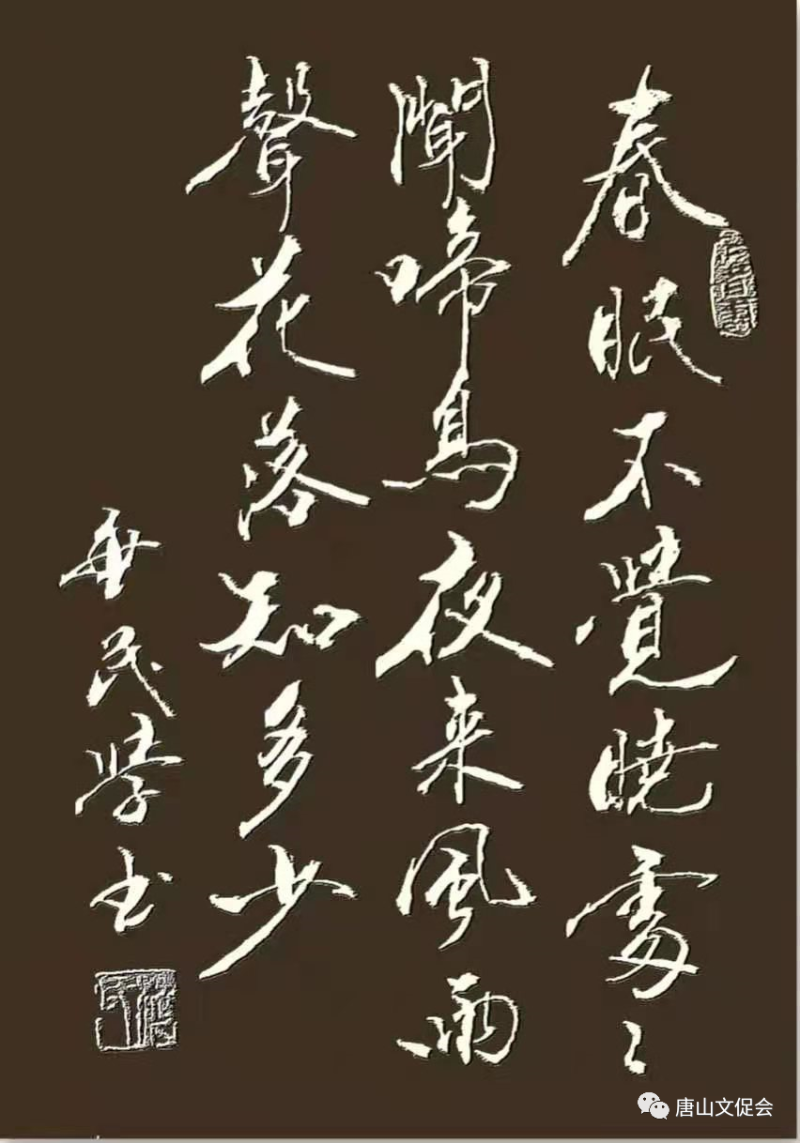 春眠不覺曉處〻
聞啼鳥夜来風雨
聲花落知多少
民學书
唐山文促会